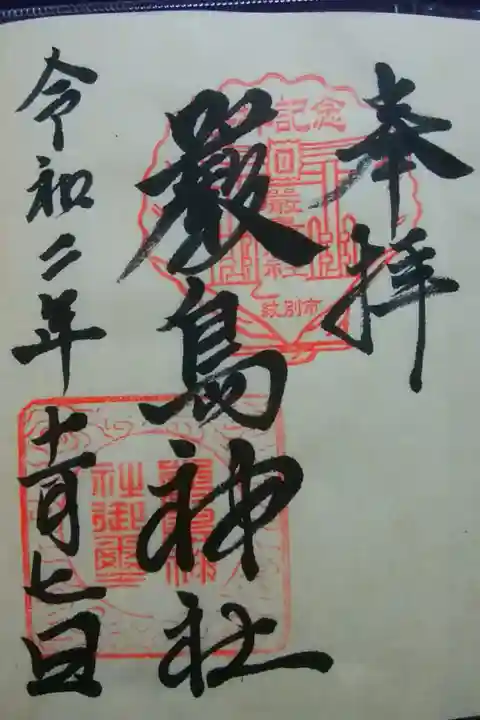 奉拝
嚴島神社
令和二年十一月七日
記念
紋別市
嚴島神
社御璽